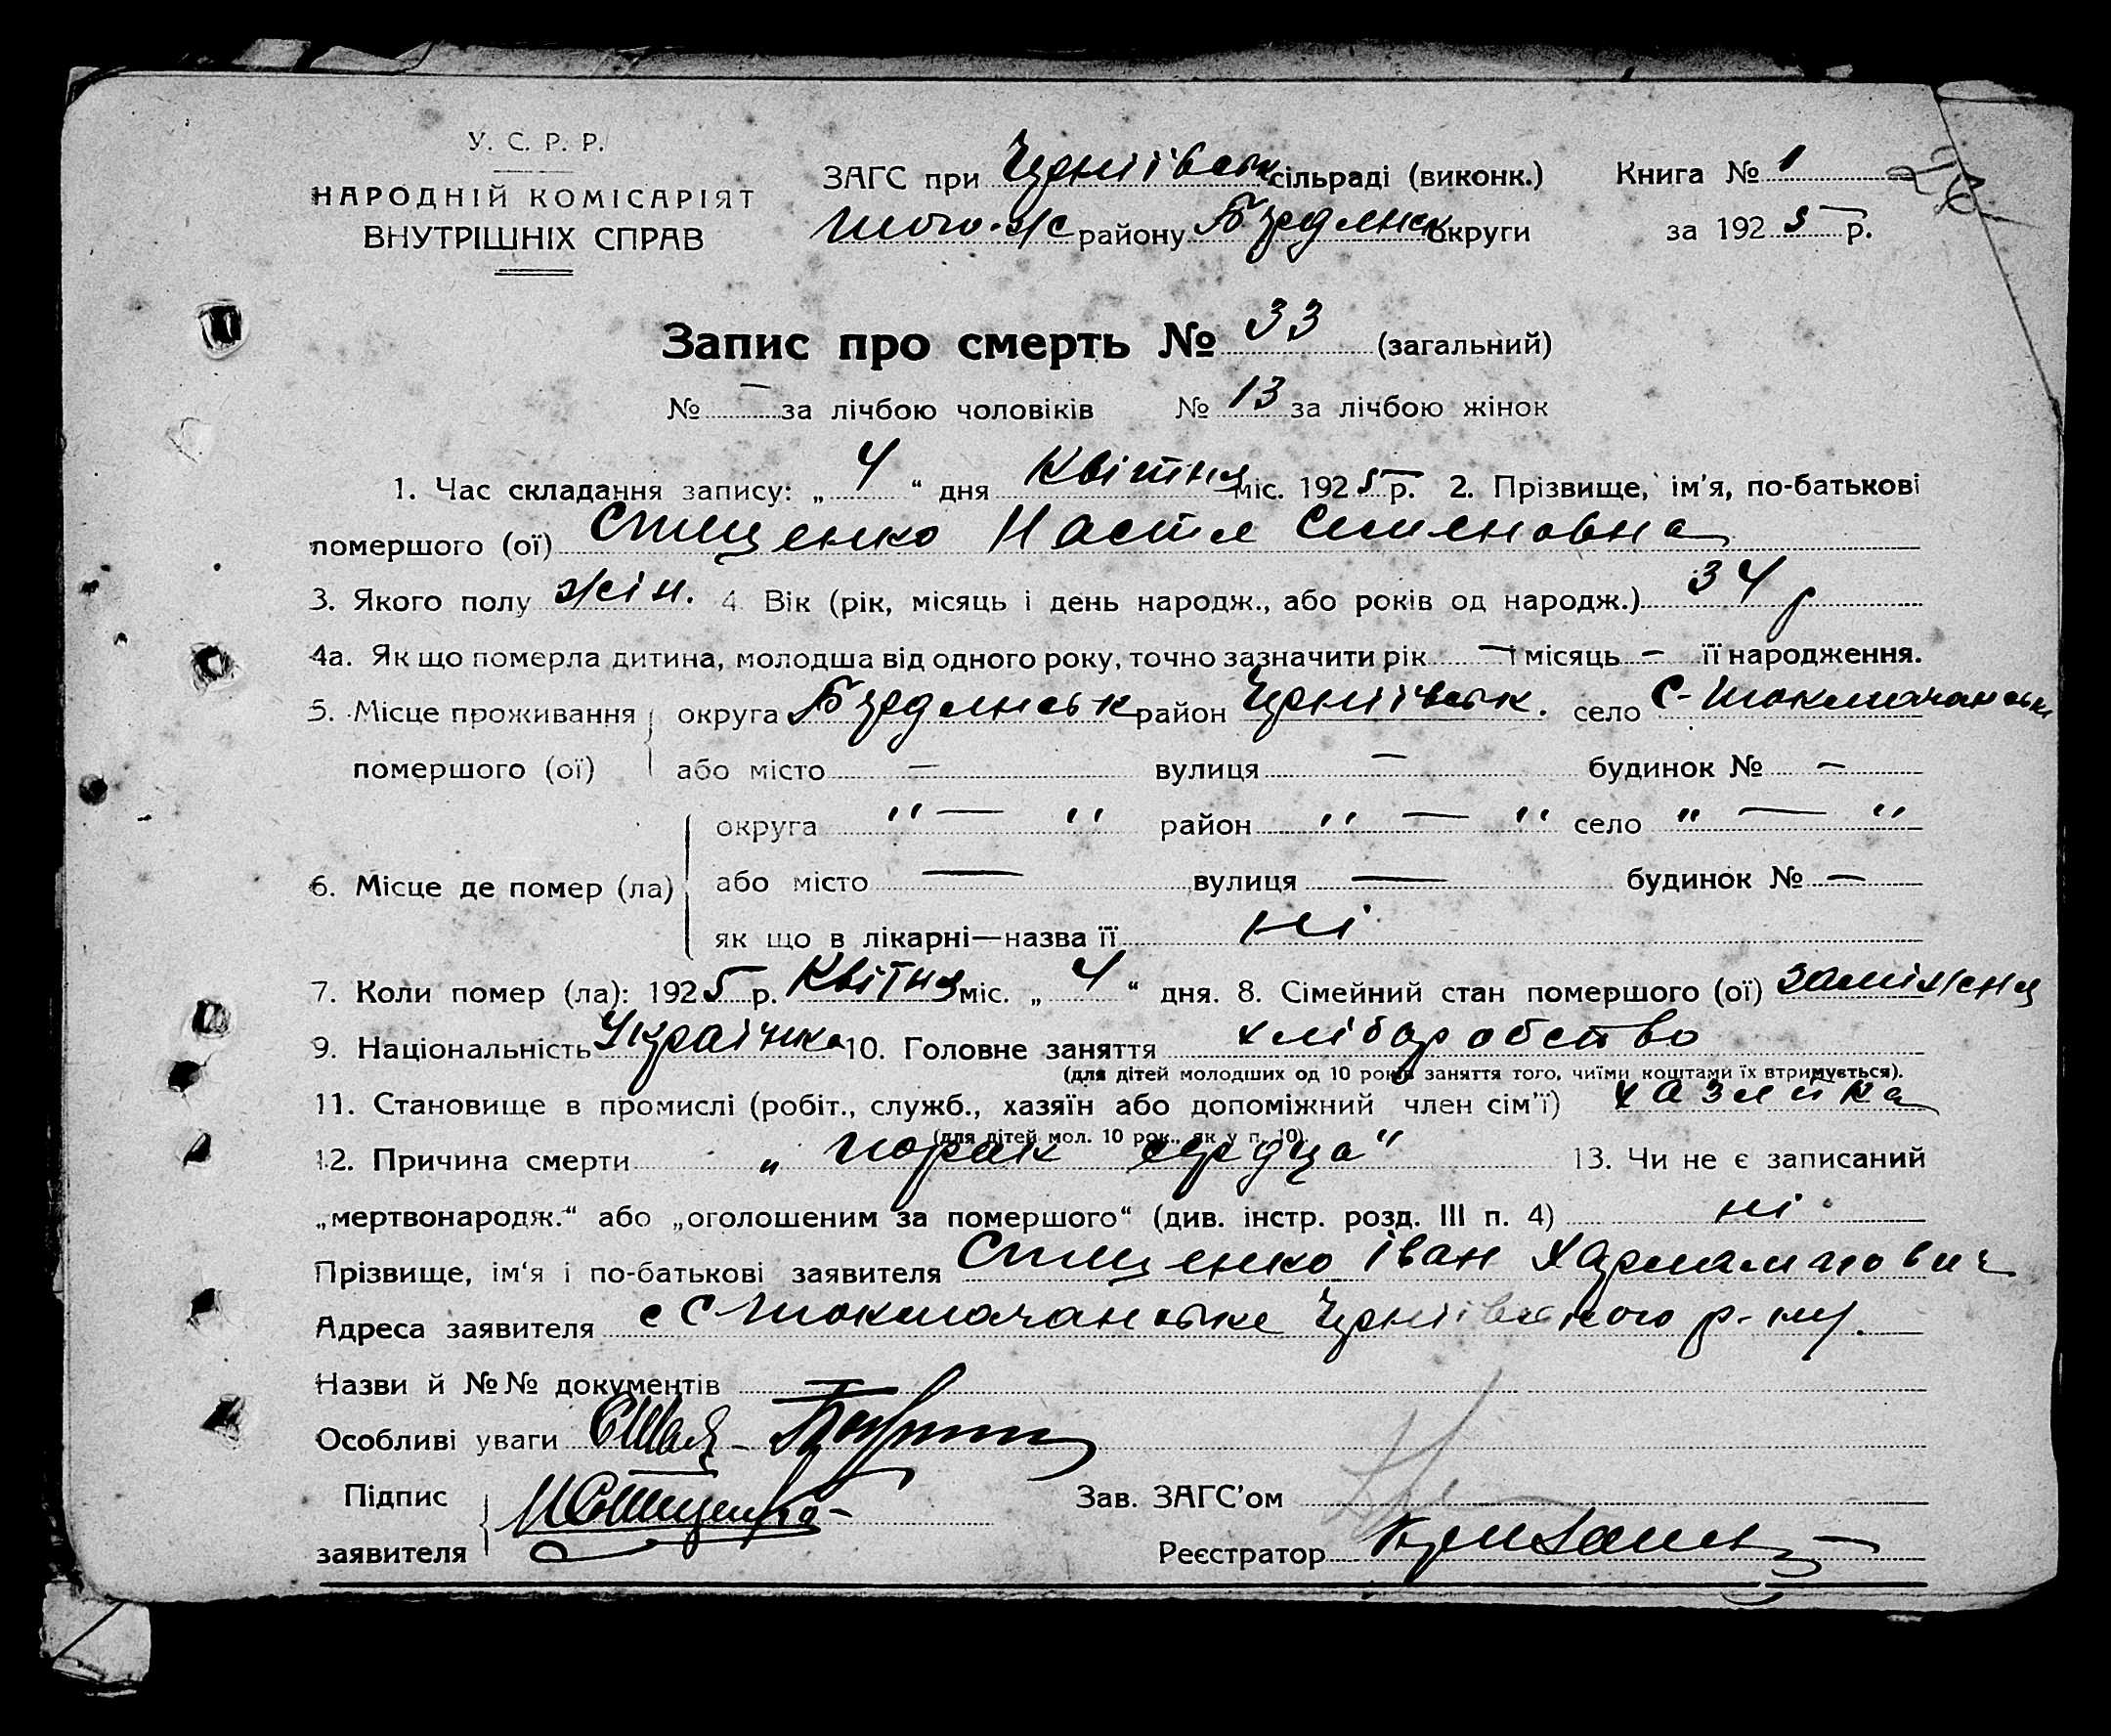 У. С. Р. Р.
НАРОДНІЙ КОМІСАРІЯТ
ВНУТРІШНІХ СПРАВ
ЗАГС при Черніївськ сільраді (виконк.)
того-ж районy Бердянськ округи
Книга № 1
за 1925 р.
26
Запис про смерть № 33 (загальний)
№ — за лічбою чоловіків № 13 за лічбою жінок
1. Час складання запису: „ 4 “ дня Квітня міс. 1925 р. 2. Прізвище, ім'я, по-батькові
помершого (ої) Спіщенко Настя Семеновна
3. Якого полу жін. 4. Вік (рік, місяць і день народж., або років од народж.) 34 р
4а. Як що померла дитина, молодша від одного року, точно зазначити рік — і місяць — її народження.
5. Місце проживання округа Бердянськ район Черніївськ. село С-Токмачанськ
помершого (ої) або місто — вулиця — будинок № —
округа " — " район " — " село " — "
6. Місце де помер (ла) або місто — вулиця — будинок № —
як що в лікарні—назва її ні
7. Коли помер (ла): 1925 р. Квітня міс. „ 4 “ дня. 8. Сімейний стан помершого (ої) заміжня
9. Національність Українка 10. Головне заняття хліборобство
(для дітей молодших од 10 років заняття того, чиїми коштами їх втримується).
11. Становище в промислі (робіт., служб., хазяїн або допоміжний член сім'ї) хазяйка
(для дітей мол. 10 рок., як у п. 10).
12. Причина смерти „порак сердца" 13. Чи не є записаний
„мертвонародж.“ або „оголошеним за помершого“ (див. інстр. розд. III п. 4) ні
Прізвище, ім'я і по-батькові заявителя Спіщенко Іван
Адреса заявителя с С Токмачанське Черніївського р-ну.
Назви й №№ документів
Особливі уваги
Підпис
заявителя
Зав. ЗАГС'ом
Реєстратор